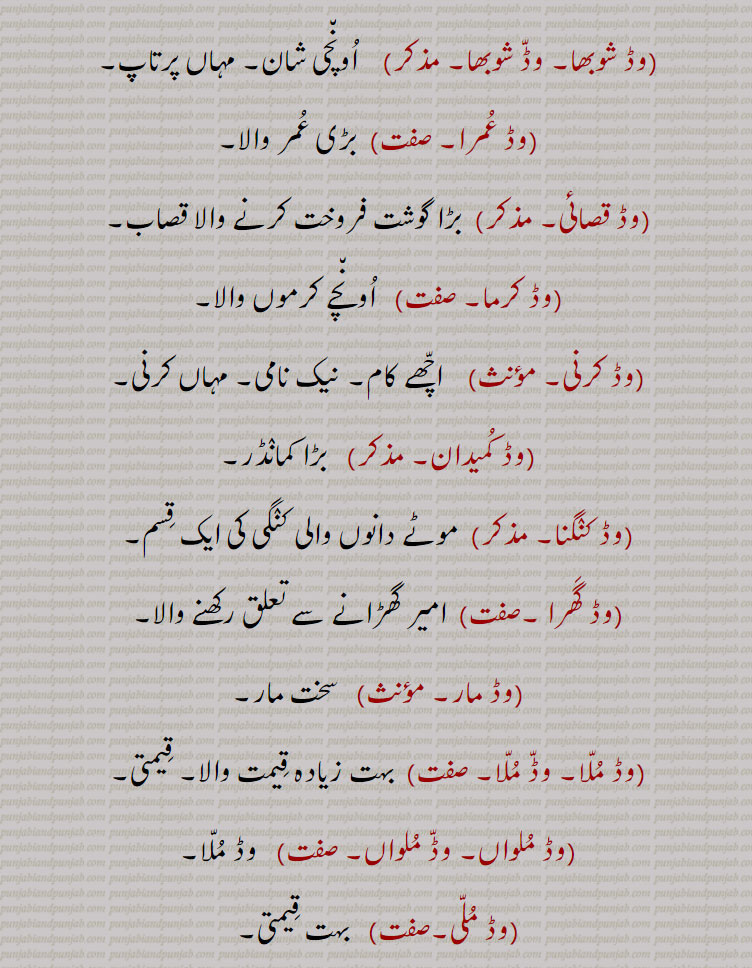 (وڈ شوبھا۔ وڈّ شوبھا۔ مذکر) اُونّچی شان۔ مہاں پرتاپ۔
(وڈ عُمرا۔ صفت) بڑی عُمر والا۔
(وڈ قصائی۔ مذکر) بڑا گوشت فروخت کرنے والا قصاب۔
(وڈ کرما۔ صفت) اُونّچے کرموں والا۔
(وڈ کرنی۔ مؤنث) اچّھے کام۔ نیک نامی۔ مہاں کرنی۔
(وڈ کُمیدان۔ مذکر) بڑا کمانڈر۔
(وڈ کنگنا۔ مذکر) موٹے دانوں والی کنگی کی ایک قِسم۔
(وڈ گھَرا۔صفت) امیر گھڑانے سے تعلق رکھنے والا۔
(وڈ مار۔ مؤنث) سخت مار۔
(وڈ مُلّا۔ وڈّ مُلّا۔ صفت) بہت زیادہ قِیمت والا۔ قِیمتی۔
(وڈ مُلواں۔ وڈّ مُلواں۔ صفت) وڈ مُلّا۔
(وڈ مُلّی۔صفت) بہت قِیمتی۔